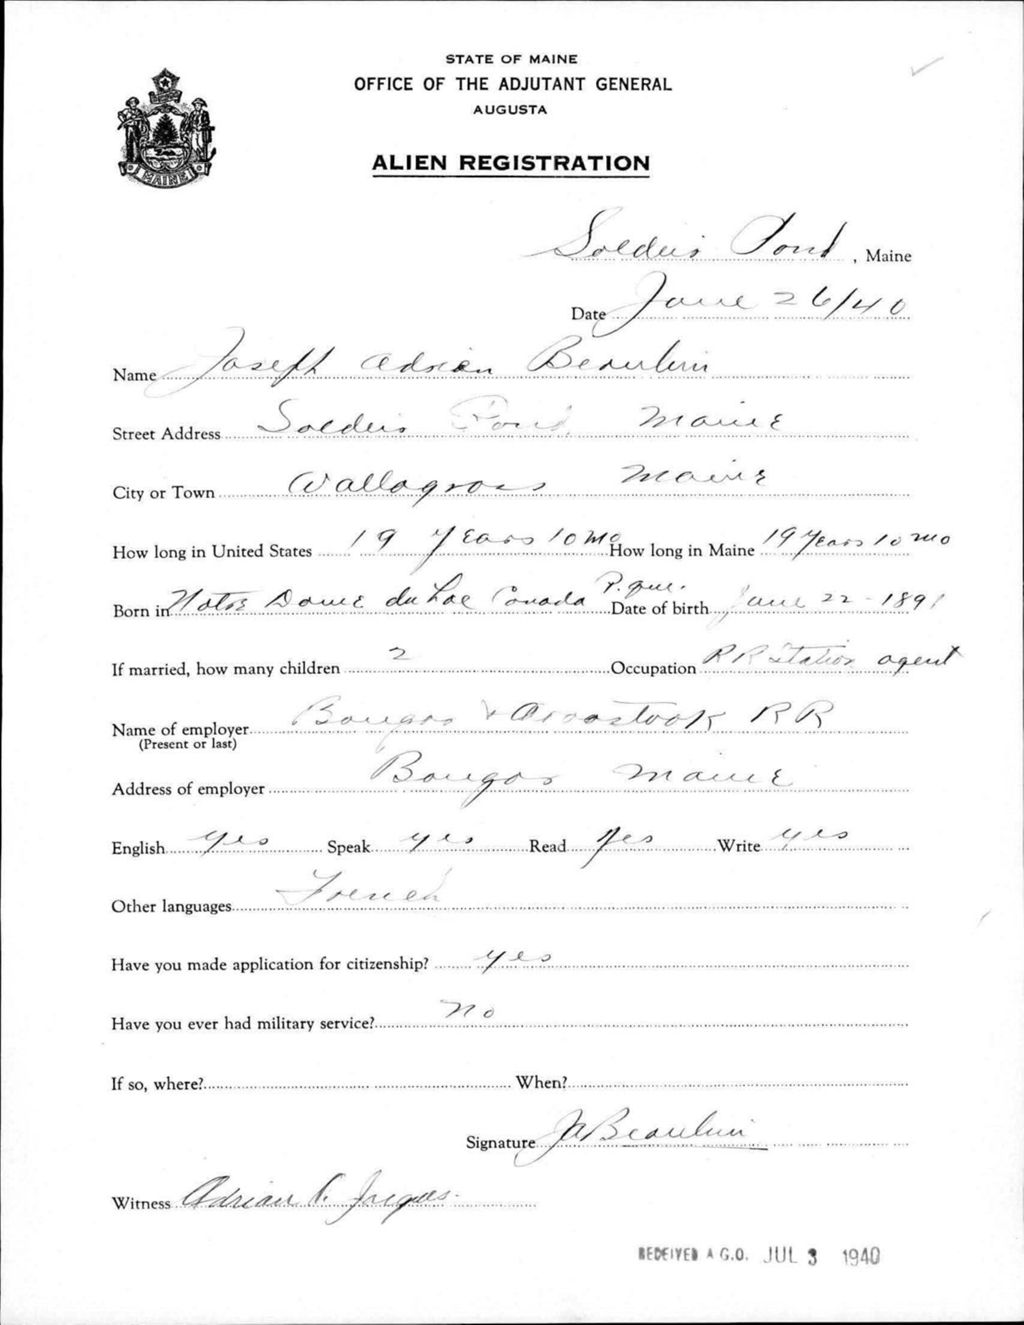 STATE OF MAINE
OFFICE OF THE ADJUTANT GENERAL
AUGUSTA
ALIEN REGISTRATION
MAINE
Soldiers Pond, Maine
Date June 26/40
Name Joseph Adrian Beaulieu
Street Address Soldiers Pond, Maine
City or Town Wallagrass Maine
How long in United States 19 Years 10 mo How long in Maine 19 Years 10 mo
Born in Notre Dame du Lac Canada P. Que. Date of birth June 22 - 1891
If married, how many children 2 Occupation RR Station agent
Name of employer Bangor & Aroostook RR
(Present or last)
Address of employer Bangor Maine
English yes Speak yes Read yes Write yes
Other languages French
Have you made application for citizenship? yes
Have you ever had military service? no
If so, where? When?
Signature JA Beaulieu
Witness Adrian
RECEIVED A.G.O. JUL 3 1940